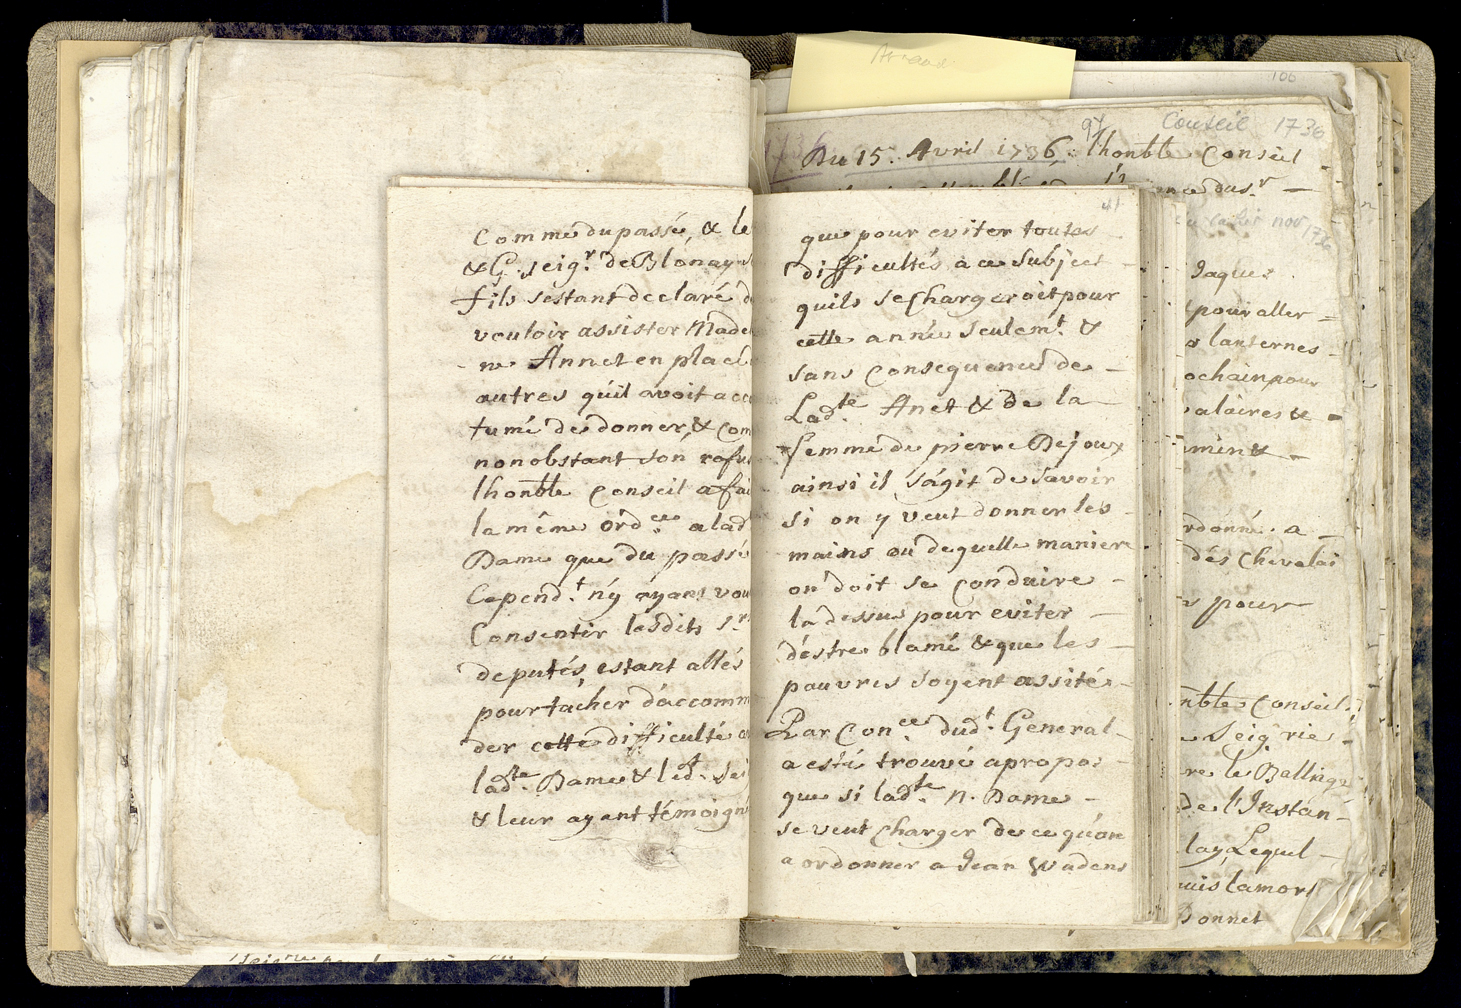 Comme du passé, & le
& G. seigr. de Blonay
fils sestant declaré d
vouloir assister Made
ne Annet en place
autres quil avoit acc
tumé de donner, & com
nonobstant son refu
lhonble Conseil a fai
la même ordce a lad
Dame que du passé
Cepend.t n'y ayans vou
Consentir lesdits Srs
deputés, estant allés
pour tacher d'accomm
der cette difficulté a
ladte Dame & led.t Sei
& leur ayant témoigné
41
que pour eviter toutes
difficultés a ce Subject
quils se Chargeroit pour
cette année Seulemt. &
sans Consequence de
Ladte Anet & de la
femme de pierre Dejoux
ainsi il s'agit de Savoir
si on y veut donner les
mains ou de quelle maniere
on doit se Conduire
la dessus pour eviter
d'estre blamé & que les
pauvres soyent assité
Par Conce. dudt. General
a esté trouvé apropos
que si ladte. N. Dame
se veut Charger de ce qu'on
a ordonner a Jean Wadens
106
97 Conseil 1736
Du 15. Avril 1736. lhonble Conseil
nov 1736
Jaques
pour aller
lanternes
ochain pour
alaires &
ment
rdonné a
des Chevalai
pour
nble Conseil
Seigrie
re le Ballinge
de l'Instan
lay Lequel
uis lamort
Donnet